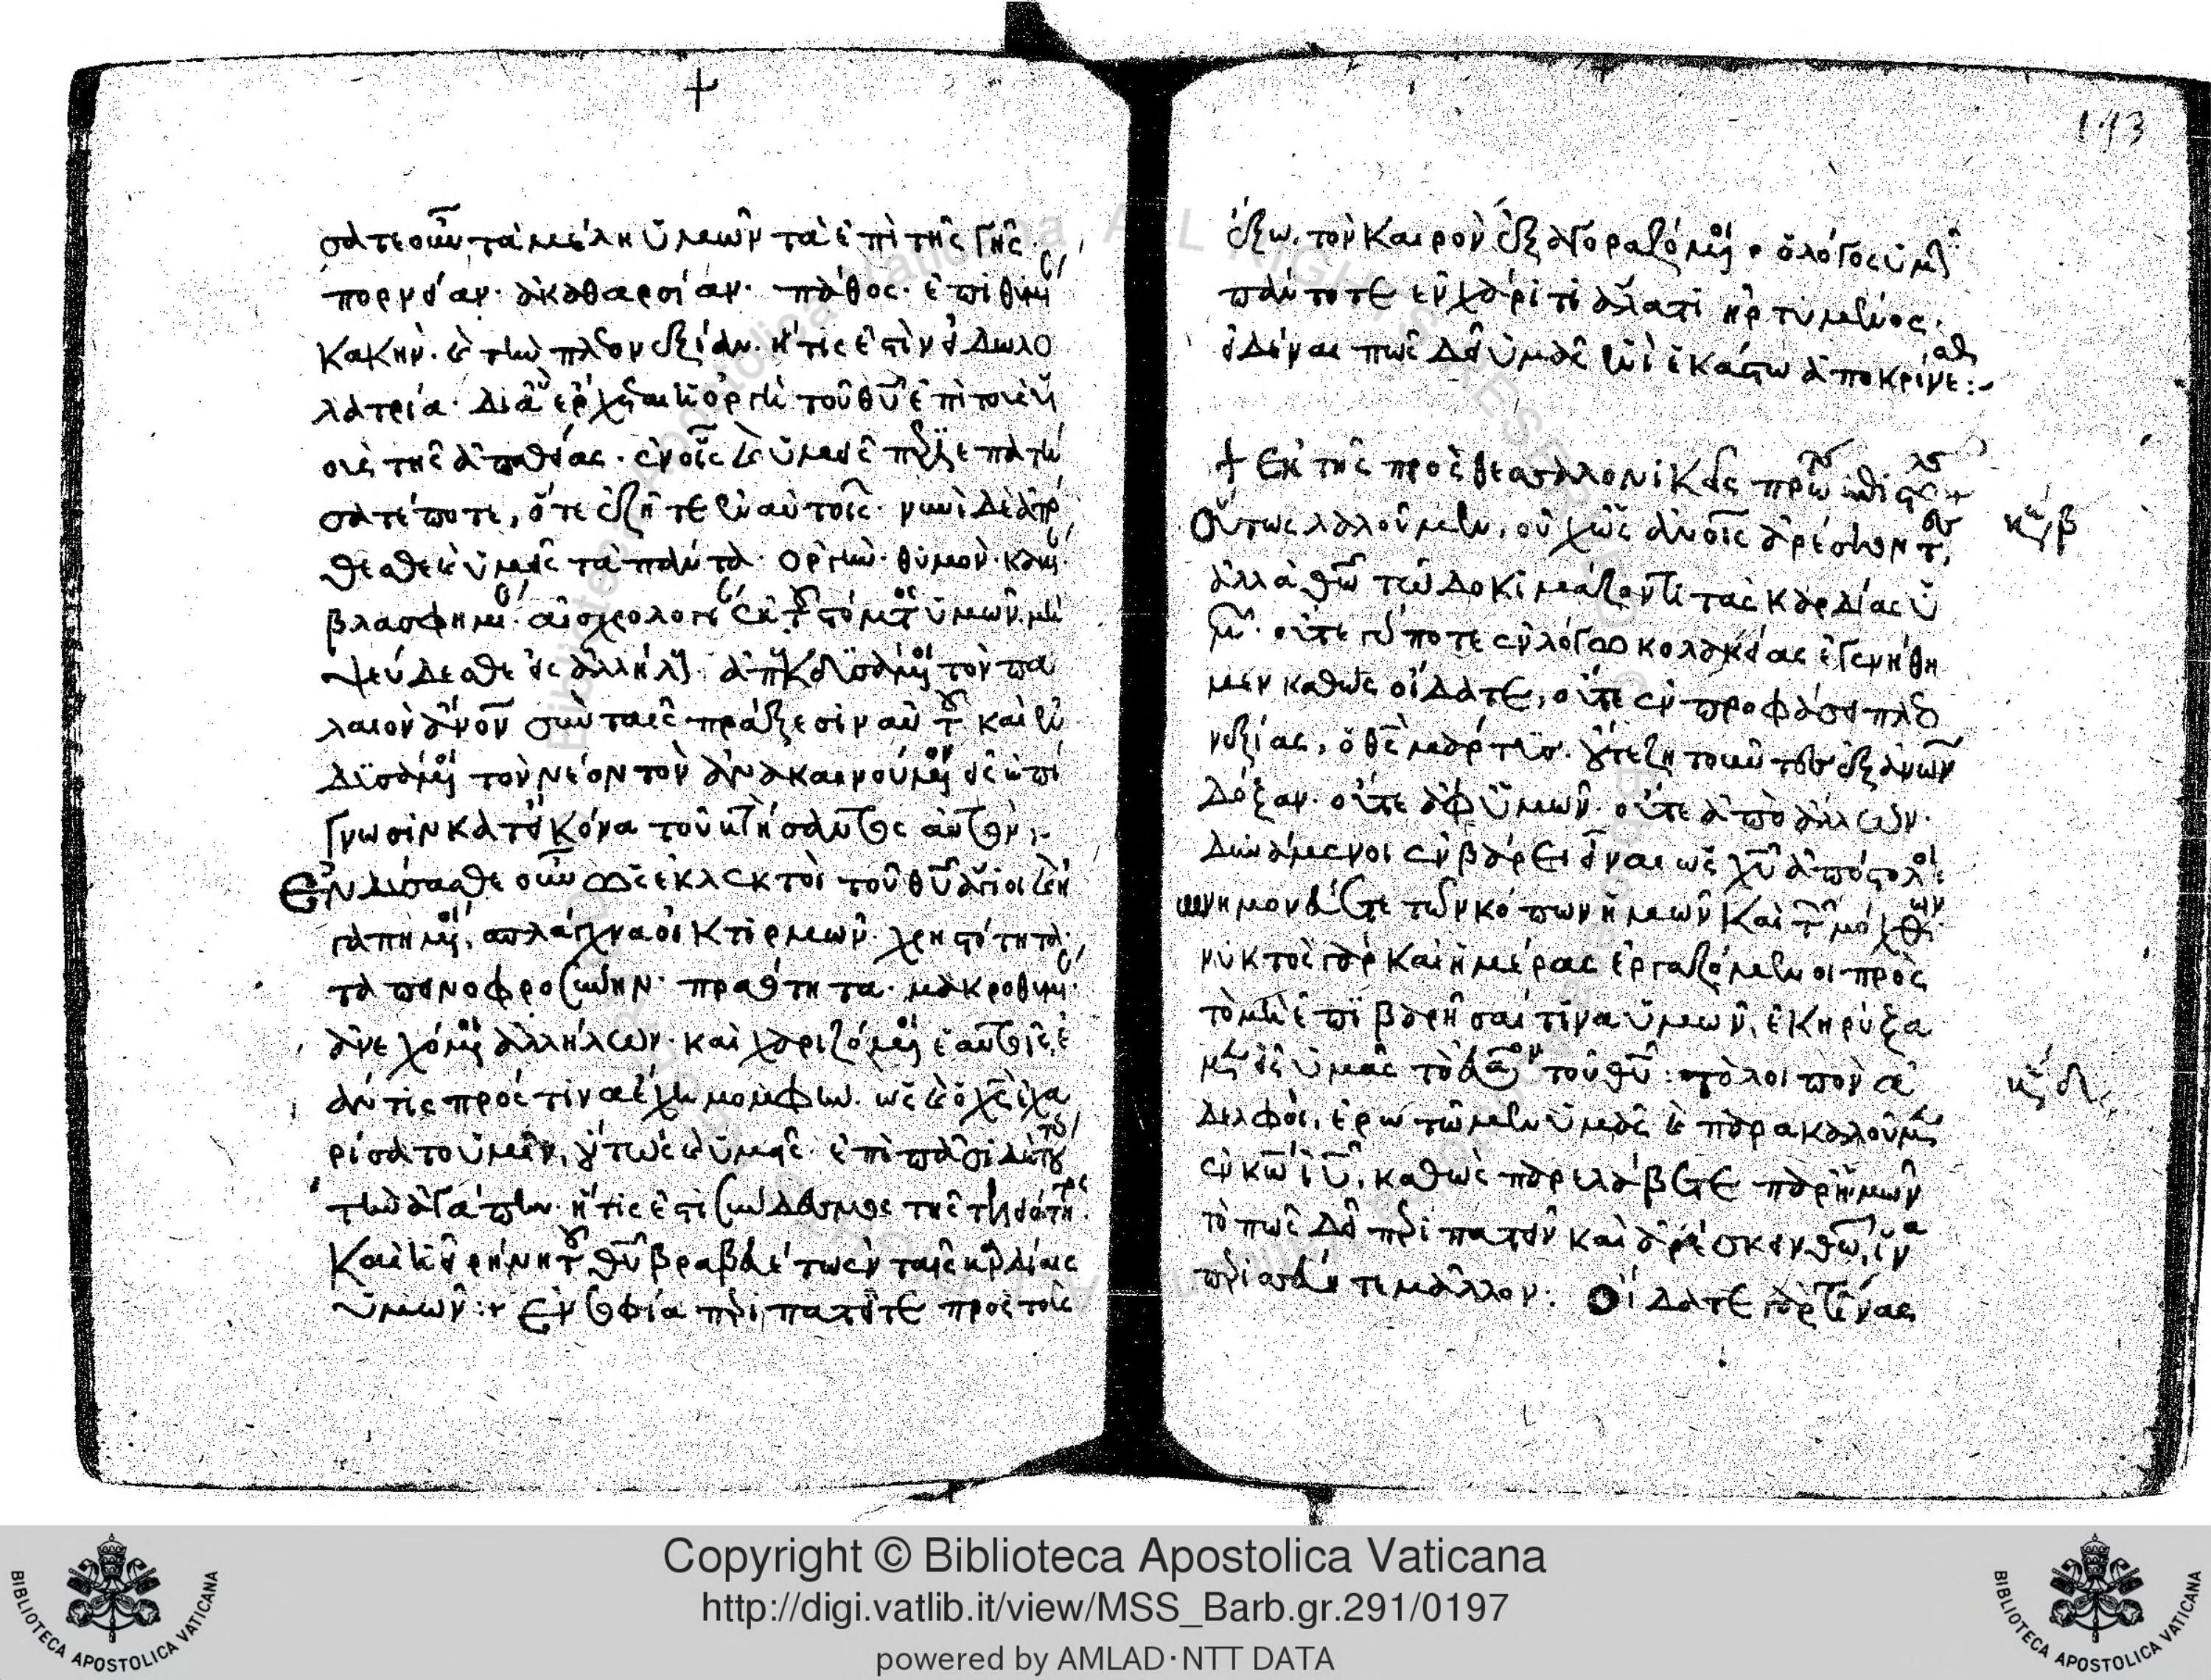 σατε οὖν τὰ μέλη ὑμῶν τὰ ἐπὶ τῆς γῆς·
πορνείαν· ἀκαθαρσίαν· πάθος· ἐπιθυμί
κακήν· καὶ τὴν πλεονεξίαν· ἥτις ἐστὶν εἰδωλο
λατρία· δι ἃ ἔρχεται ἡ ὀργὴ τοῦ θυ ἐπὶ τοὺς υἱ
οὺς τῆς ἀπειθείας· ἐν οἷς καὶ ὑμεῖς περιεπατή
σατέ ποτε, ὅτε ἐζῆτε ἐν αὐτοῖς· νυνὶ δὲ ἀπό
θεσθε καὶ ὑμεῖς τὰ πάντα· ὀργὴν· θυμὸν· κακί·
βλασφημί· αἰσχρολογί ἐκ τοῦ στόματος ὑμῶν· μὴ
ψεύδεσθε εἰς ἀλλήλους· ἀπεκδυσάμενοι τὸν πα
λαιὸν ἄνον σὺν ταῖς πράξεσιν αὐτοῦ καὶ ἐν
δυσάμενοι τὸν νέον τὸν ἀνακαινούμενον εἰς ἐπί
γνωσιν κατ εἰκόνα τοῦ κτίσαντος αὐτόν·
Ἐνδύσασθε οὖν ὡς ἐκλεκτοὶ τοῦ θυ ἅγιοι καὶ ἠ
γαπημένοι, σπλάγχνα οἰκτιρμῶν· χρηστότητα·
ταπεινοφροσύνην· πραότητα· μακροθυμί·
ἀνεχόμενοι ἀλλήλων· καὶ χαριζόμενοι ἑαυτοῖς, ἐ
άν τις πρός τινα ἔχῃ μομφήν· ὡς καὶ ὁ χς ἐχα
ρίσατο ὑμῖν, οὕτως καὶ ὑμεῖς· ἐπὶ πᾶσι δὲ τού
τοις τὴν ἀγάπην· ἥτις ἐστὶ σύνδεσμος τῆς τελειότητος·
καὶ ἡ εἰρήνη τοῦ θυ βραβευέτω ἐν ταῖς καρδίαις
ὑμῶν: Ἐν σοφίᾳ περιπατεῖτε πρὸς τοὺς
193
ἔξω, τὸν καιρὸν ἐξαγοραζόμενοι· ὁ λόγος ὑμῶν
πάντοτε ἐν χάριτι ἅλατι ἠρτυμένος·
εἰδέναι πῶς δεῖ ὑμᾶς ἑνὶ ἑκάστῳ ἀποκρίνεσθαι:
+ Ἐκ τῆς πρὸς θεσσαλονικεῖς πρώτης ἐπιστολῆς
Οὕτως λαλοῦμεν, οὐχ ὡς ἀνοις ἀρέσκοντες,
ἀλλὰ θω τῷ δοκιμάζοντι τὰς καρδίας ὑ
μῶν· οὔτε γάρ ποτε ἐν λόγῳ κολακείας ἐγενήθη
μεν καθὼς οἴδατε, οὔτε ἐν προφάσει πλεο
νεξίας, ὁ θς μάρτυς· οὔτε ζητοῦντες ἐξ ἀνων
δόξαν· οὔτε ἀφ ὑμῶν· οὔτε ἀπὸ ἄλλων·
δυνάμενοι ἐν βάρει εἶναι ὡς χυ ἀπόστολοι:
μνημονεύετε τὸν κόπον ἡμῶν καὶ τὸν μόχθον·
νυκτὸς γὰρ καὶ ἡμέρας ἐργαζόμενοι πρὸς
τὸ μὴ ἐπιβαρῆσαί τινα ὑμῶν, ἐκηρύξα
μεν εἰς ὑμᾶς τὸ εὐαγγέλιον τοῦ θυ: τὸ λοιπὸν ἀ
δελφοὶ, ἐρωτῶμεν ὑμᾶς καὶ παρακαλοῦμεν
ἐν κω ιυ, καθὼς παρελάβετε παρ ἡμῶν
τὸ πῶς δεῖ περιπατεῖν καὶ ἀρέσκειν θω, ἵνα
περισσεύητε μᾶλλον: Οἴδατε γὰρ τίνας